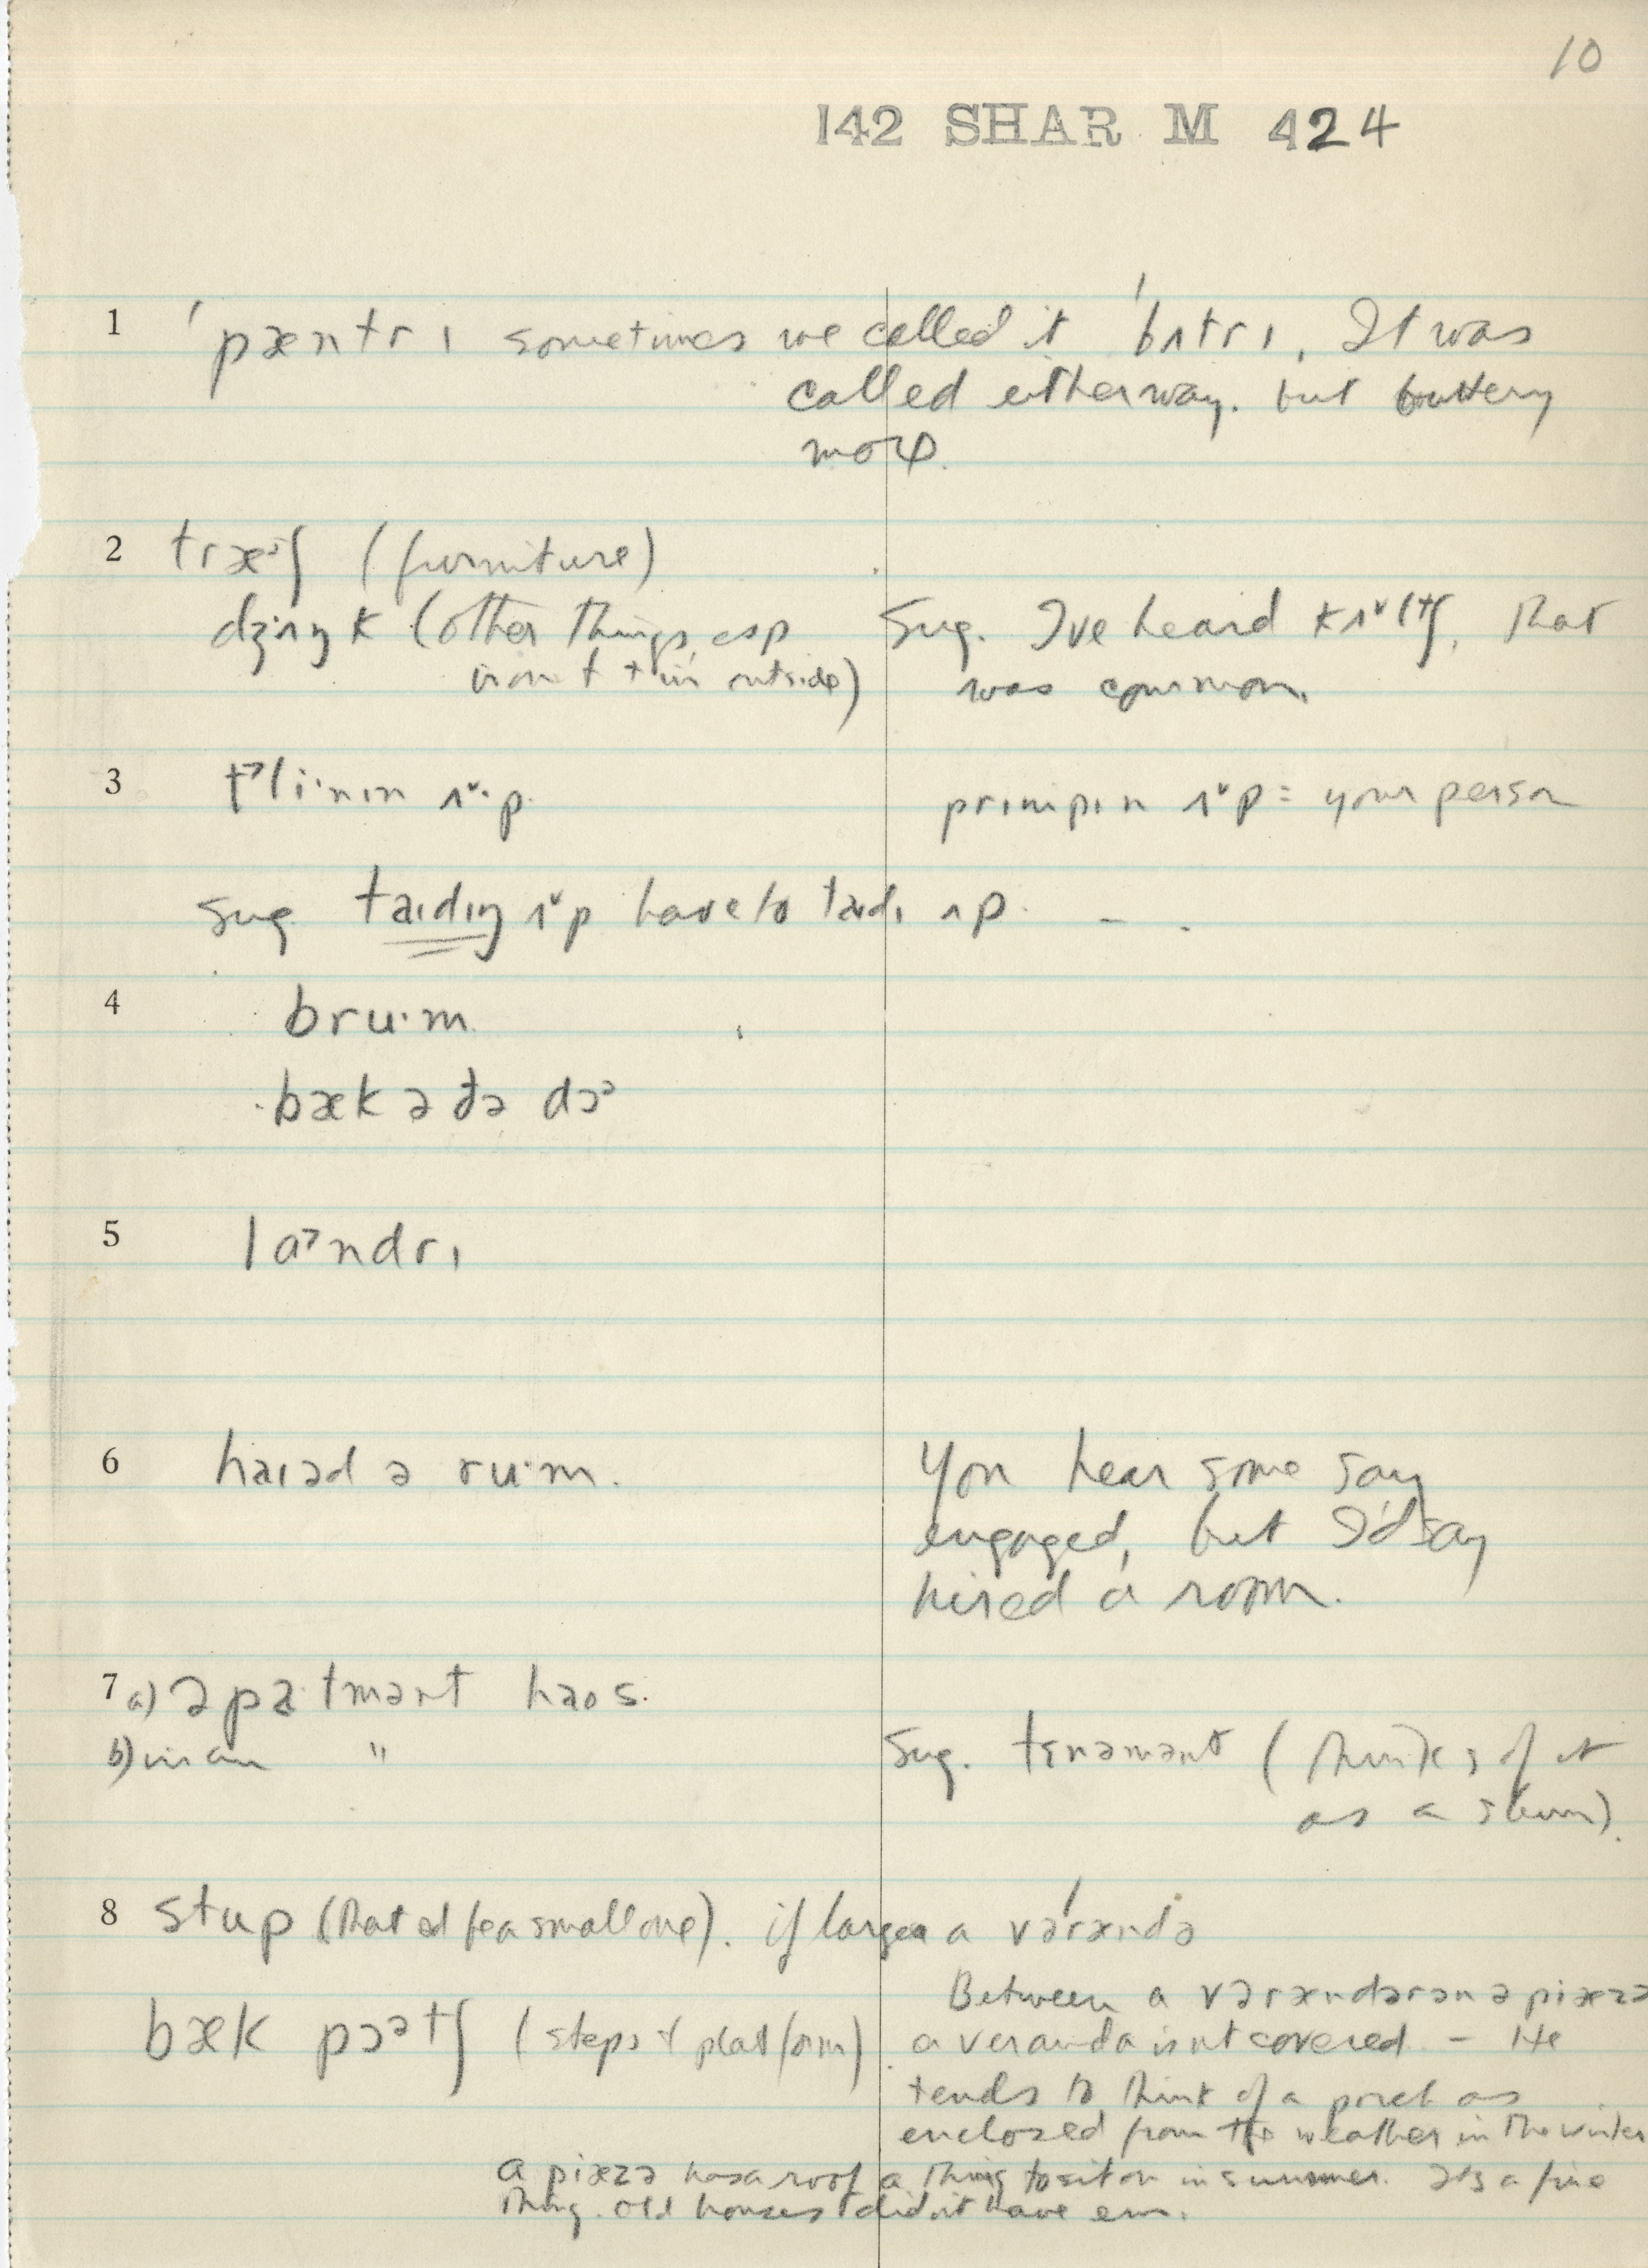 10
142 SHAR M 424
1 ˈpæntrɪ sometimes we called it ˈbʌtrɪ. It was
called either way. but buttery
more.
2 træᵊʃ (furniture)
dʒʌŋk (other things, esp
iron & tin outside)
Sug. I've heard That
was common.
3 kli·nɪn ʌ˅·p
prɪmpɪn ʌ˅p = your person
Sug. taɪdɪŋ ʌ˅p have to taɪdɪ ʌp. –.
4 bru·m
bæk ə ðə dɔᵊ
5 laᵊndrɪ
6 haɪəd ə ru·m.
You hear some say
engaged, but I'd say
hired a room.
7 a) əpa·tmənt haos.
b) in an "
Sug. tɛnəmənt (thinks of it
as a slum).
8 stup (that'd be a small one). if larger a vəˈrændə
Between a vərændərən ə piæzə
bæk pɔətʃ (steps & platform)
a veranda isn't covered – He
tends to think of a porch as
enclosed from the weather in the winter
a piæzə has a roof a thing to sit on in summer. It's a fine
thing. old houses didn't have em.